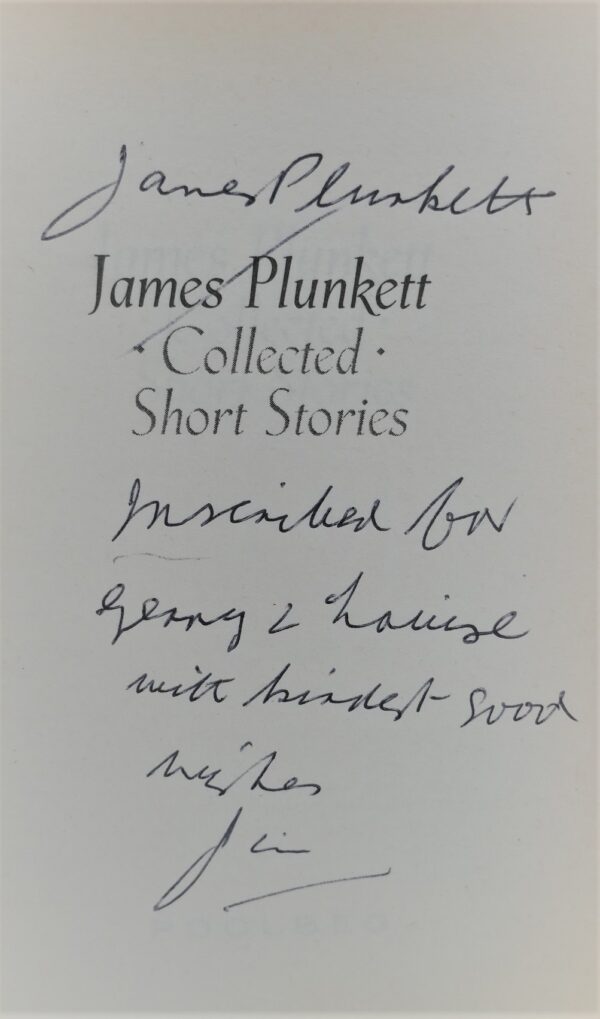 James Plunkett
James Plunkett
· Collected ·
Short Stories
Inscribed for
Gerry & Louise
with kindest good
wishes
Jim
POOLBEG